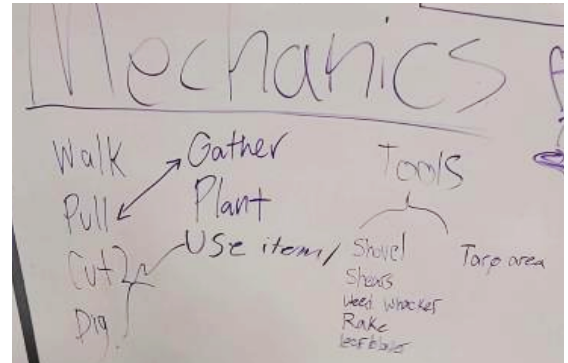 Mechanics
Walk
Pull
Cut
Dig
Gather
Plant
Use item/
Tools
Shovel
Shears
Weed whacker
Rake
leaf blower
Tarp area